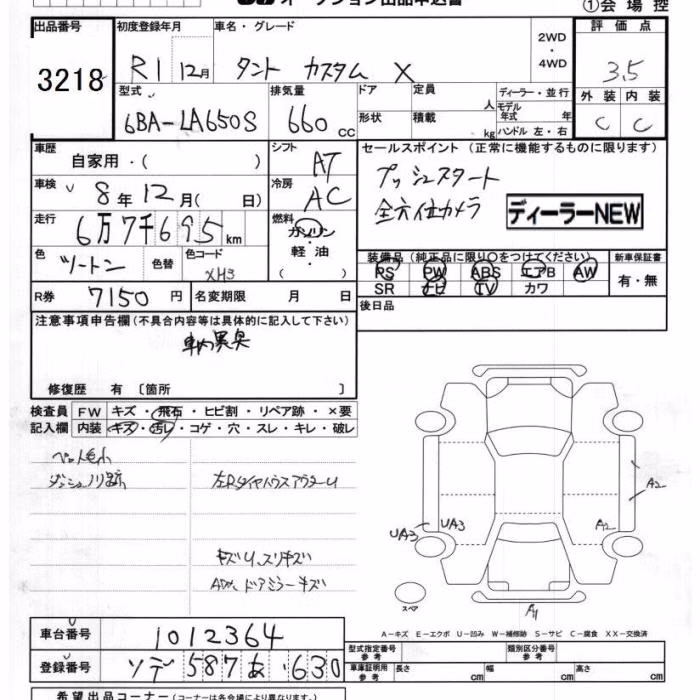 オークション出品申込書 ①会場控
出品番号 初度登録年月 車名・グレード 2WD ・ 4WD 評価点
3218 R1 12月 タント カスタム X 3.5
型式 排気量 ドア 定員 人 ディーラー・並行 外装 内装
6BA-LA650S 660 cc 形状 積載 kg モデル年式 年 ハンドル 左・右 C C
車歴 自家用・( ) シフト AT セールスポイント(正常に機能するものに限ります)
車検 8年12月( 日) 冷房 AC プッシュスタート
走行 6万7千695 km 燃料 ガソリン・軽油・( ) 全方位カメラ ディーラーNEW
色 ツートン 色替 色コード XH3 装備品(純正品に限り○をつけてください) 新車保証書
PS PW ABS エアB AW 有・無
R券 7150円 名変期限 月 日 SR ナビ TV カワ
注意事項申告欄(不具合内容等は具体的に記入して下さい) 後日品
車内異臭
修復歴 有〔箇所 〕
検査員 FW キズ・飛石・ヒビ割・リペア跡・×要
記入欄 内装 キズ・汚レ・コゲ・穴・スレ・キレ・破レ
ペット毛小
ダッシュノリ跡 左RタイヤハウスアウターU
A2
UA3 UA3 A2
キズU、スリキズ
ドアミラーキズ
スペア A1
A-キズ E-エクボ U-凹み W-補修跡 S-サビ C-腐食 XX-交換済
車台番号 1012364
登録番号 ソデ 587 あ・630
型式指定番号 参考 類別区分番号 参考
車庫証明用 参考 長さ cm 幅 cm 高さ cm
希望出品コーナー(コーナーは各会場により異なります)